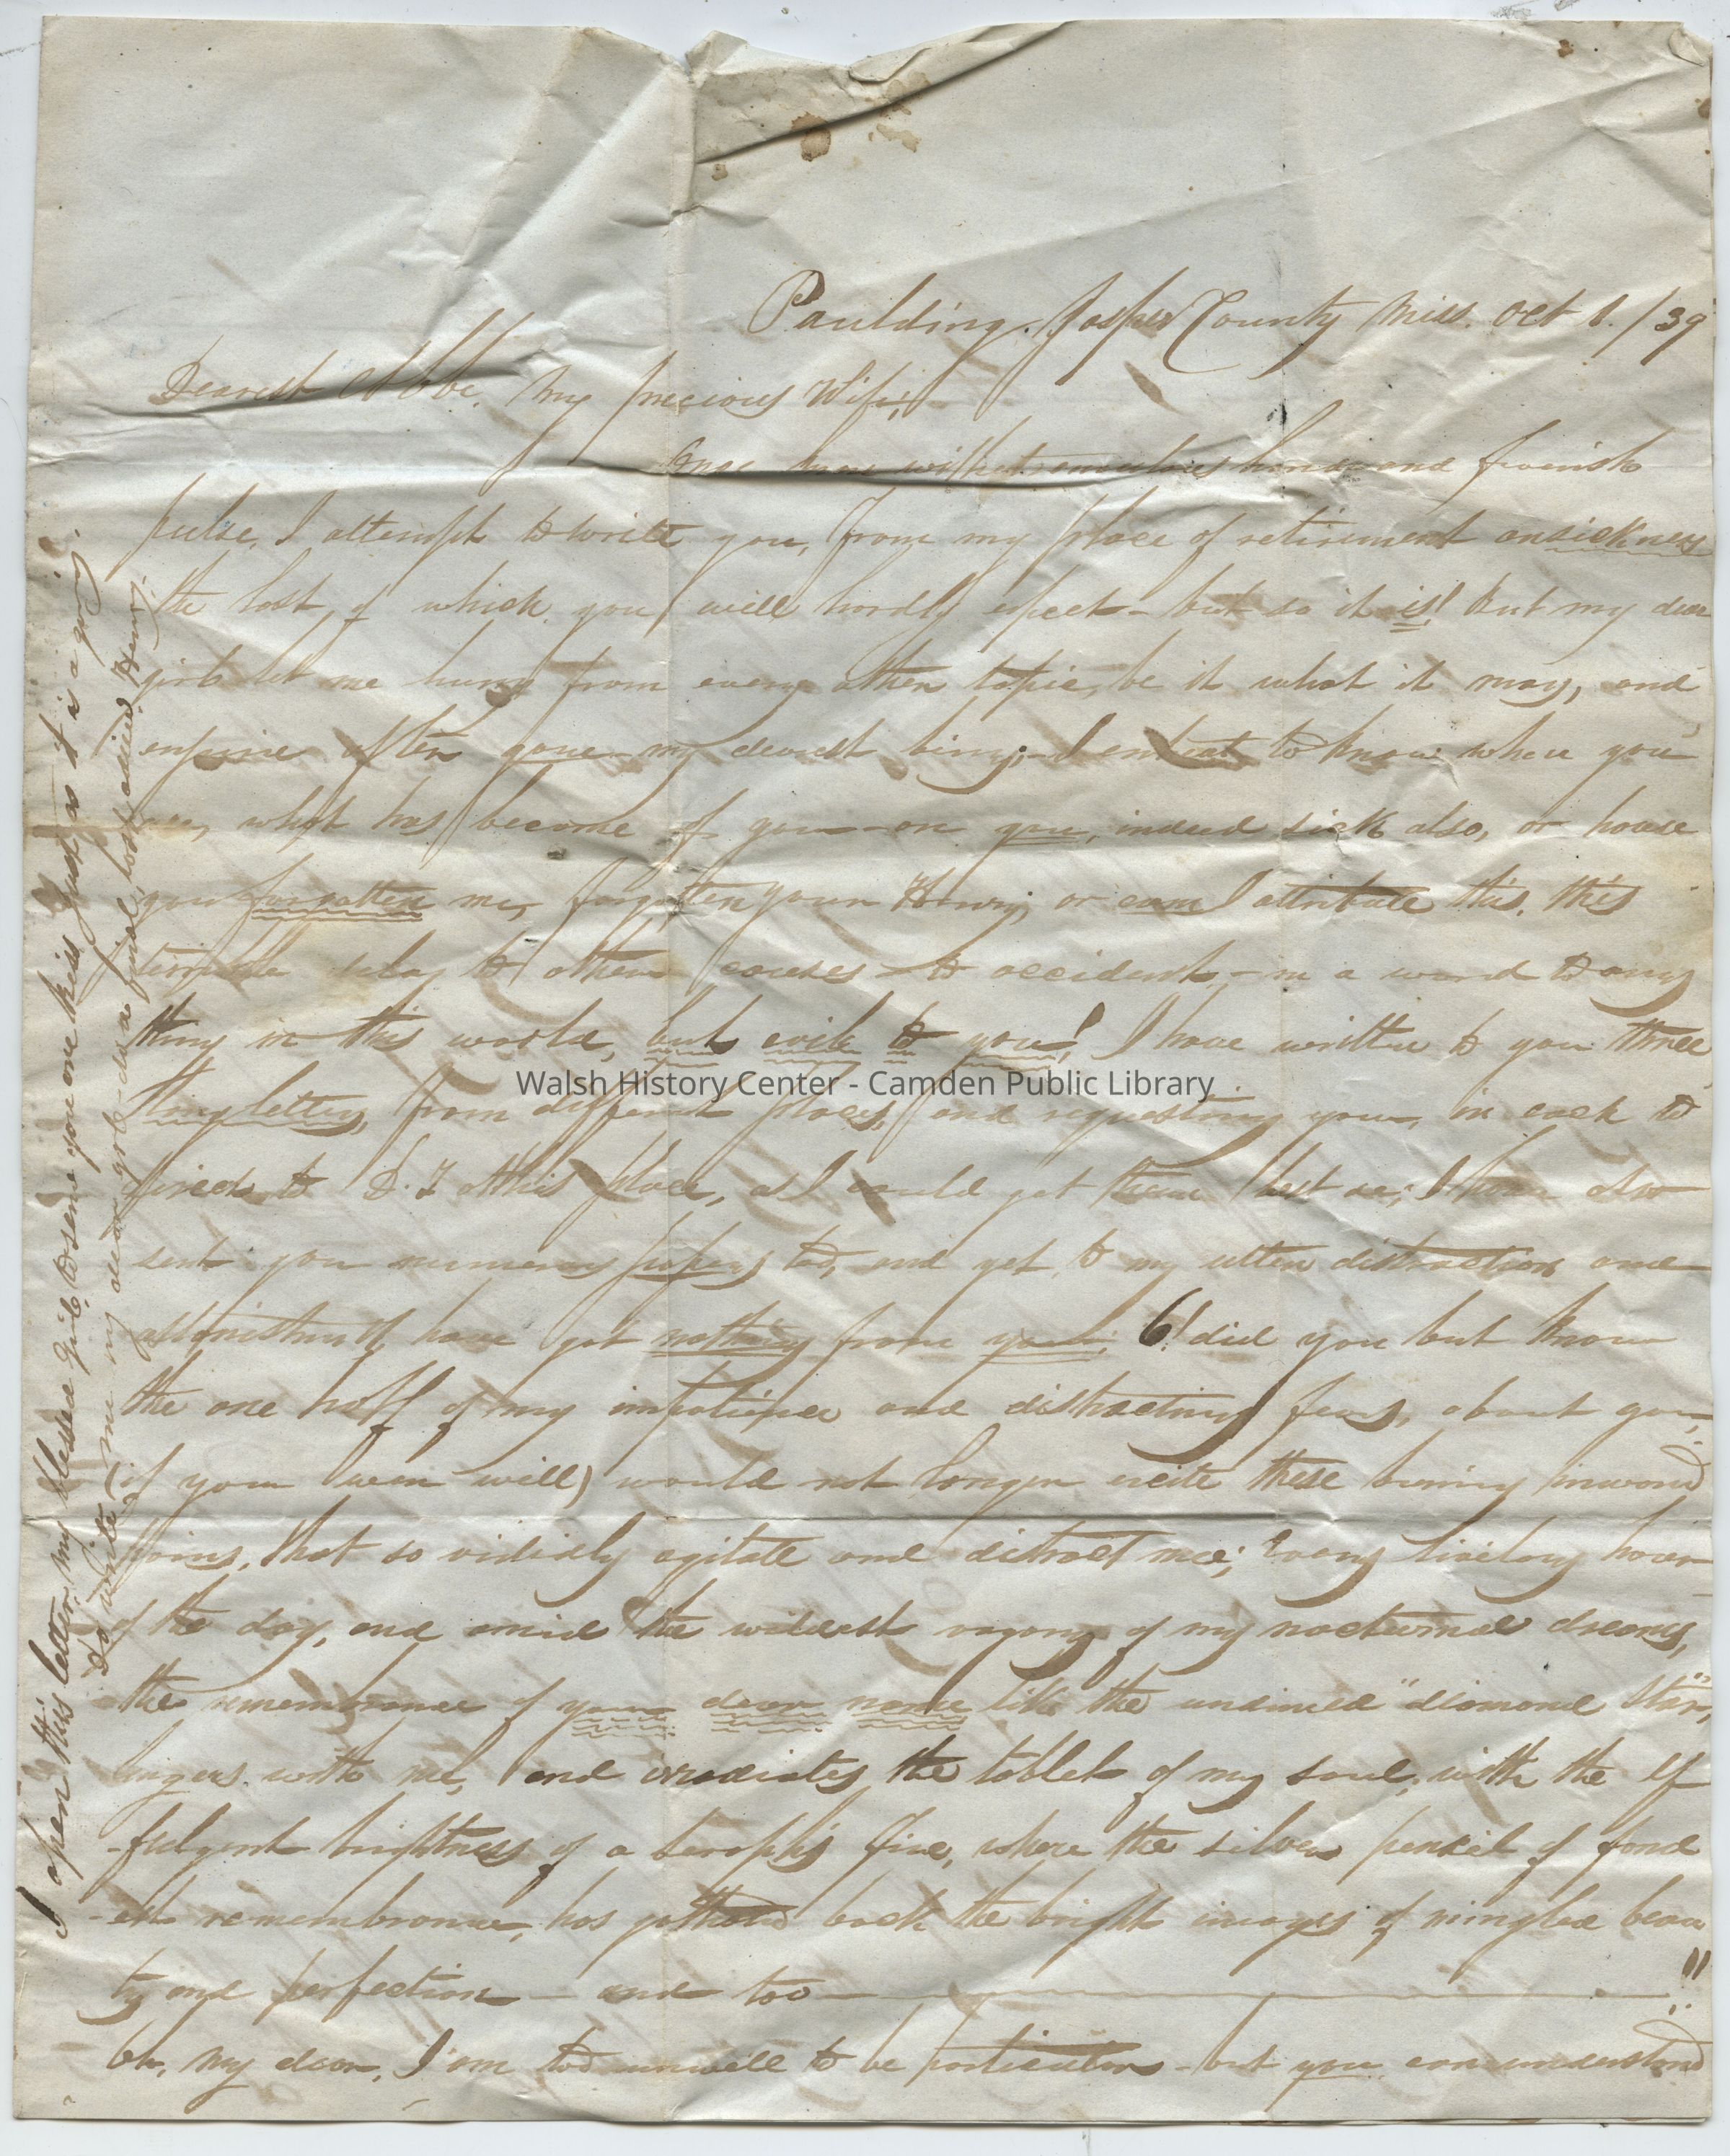 Paulding. Jasper County Miss. Oct 1. /39
Dearest Abbe, My precious Wife;
Once more with tremulous hand and fevrish
pulse, I attempt to write you, from my place of retirement on sickness
the last of which you will hardly expect - but so it is! But my dear
girl let me hurry from every other topic, be it what it may, and
enquire after your my dearest being; - I entreat to know where you
are, what has become of you - are you, indeed sick also, or have
you forgotten me, forgotten your Henry, or can I attribute this, this
terrible delay to other causes - to accident, - in a word to any
thing in this world, but evil to you! I have written to you three
long letters, from different places, and requesting you, in each to
direct to D. I at this place, as I could get them best so; I have also
sent you numerous papers too, and yet, to my utter distraction and
astonishment, have got nothing from you, O! did you but know
the one half of my impatience and distracting fears, about you,
(if your own will) would not longer excite these burning inward
pains, that so vividly agitate and distract me; Every livelong hour
of the day, and amid the wildest vagary of my nocturnal dreams,
the remembrance of your dear name like the undimed "diamond star",
lingers with me, and irradiates the tablet of my soul, with the ef
-fulgent brightness of a seraph's fire, where the silver pencil of fond
-est remembrance, has gathered back the bright images of mingled beau
ty and perfection - and too - !!
Oh, my dear, I am too unwell to be particular - but you can understand
I open this letter, my blessed girl, to send you one kiss just as it is a going.
Do write me my dear girl - do - a final, last, adieu, Henry.
Walsh History Center - Camden Public Library